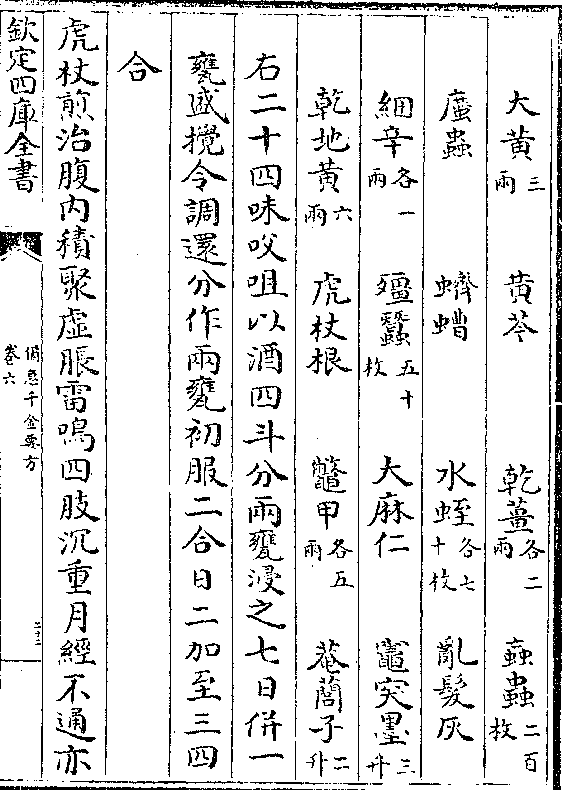 大黃三兩 黄芩 乾薑各二兩 蝱蟲二百枚
䗪蟲 蠐螬 水蛭各七十枚 亂髮灰
細辛各一兩 殭蠶五十枚 大麻仁 竈突墨三升
乾地黃六兩 虎杖根 鼈甲各五兩 菴䕡子二升
右二十四味㕮咀以酒四斗分兩甕浸之七日併一
甕盛攪令調還分作兩甕初服二合日二加至三四
合
虎杖煎治腹内積聚虛脹雷鳴四肢沉重月經不通亦
欽定四庫全書
備急千金要方
卷六